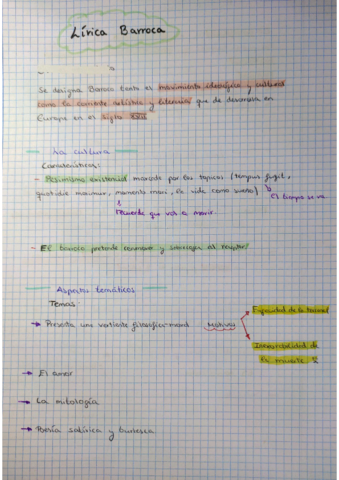 Lírica Barroca
Se designa Barroco tanto el movimiento ideológico y cultural
como la corriente artística y literaria que se desarrolla en
Europa en el siglo XVII
La cultura
Características:
- Pesimismo existencial marcado por los tópicos (tempus fugit,
quotidie morimur, memento mori, la vida como sueño)
El tiempo se va
recuerda que vas a morir
- El barroco pretende conmover y sobrecoger al receptor
Aspectos temáticos
Temas:
→ Presenta una vertiente filosófica-moral
Motivos
Fugacidad de la
Inexorabilidad de
la muerte
→ El amor
→ La mitología
→ Poesía satírica y burlesca